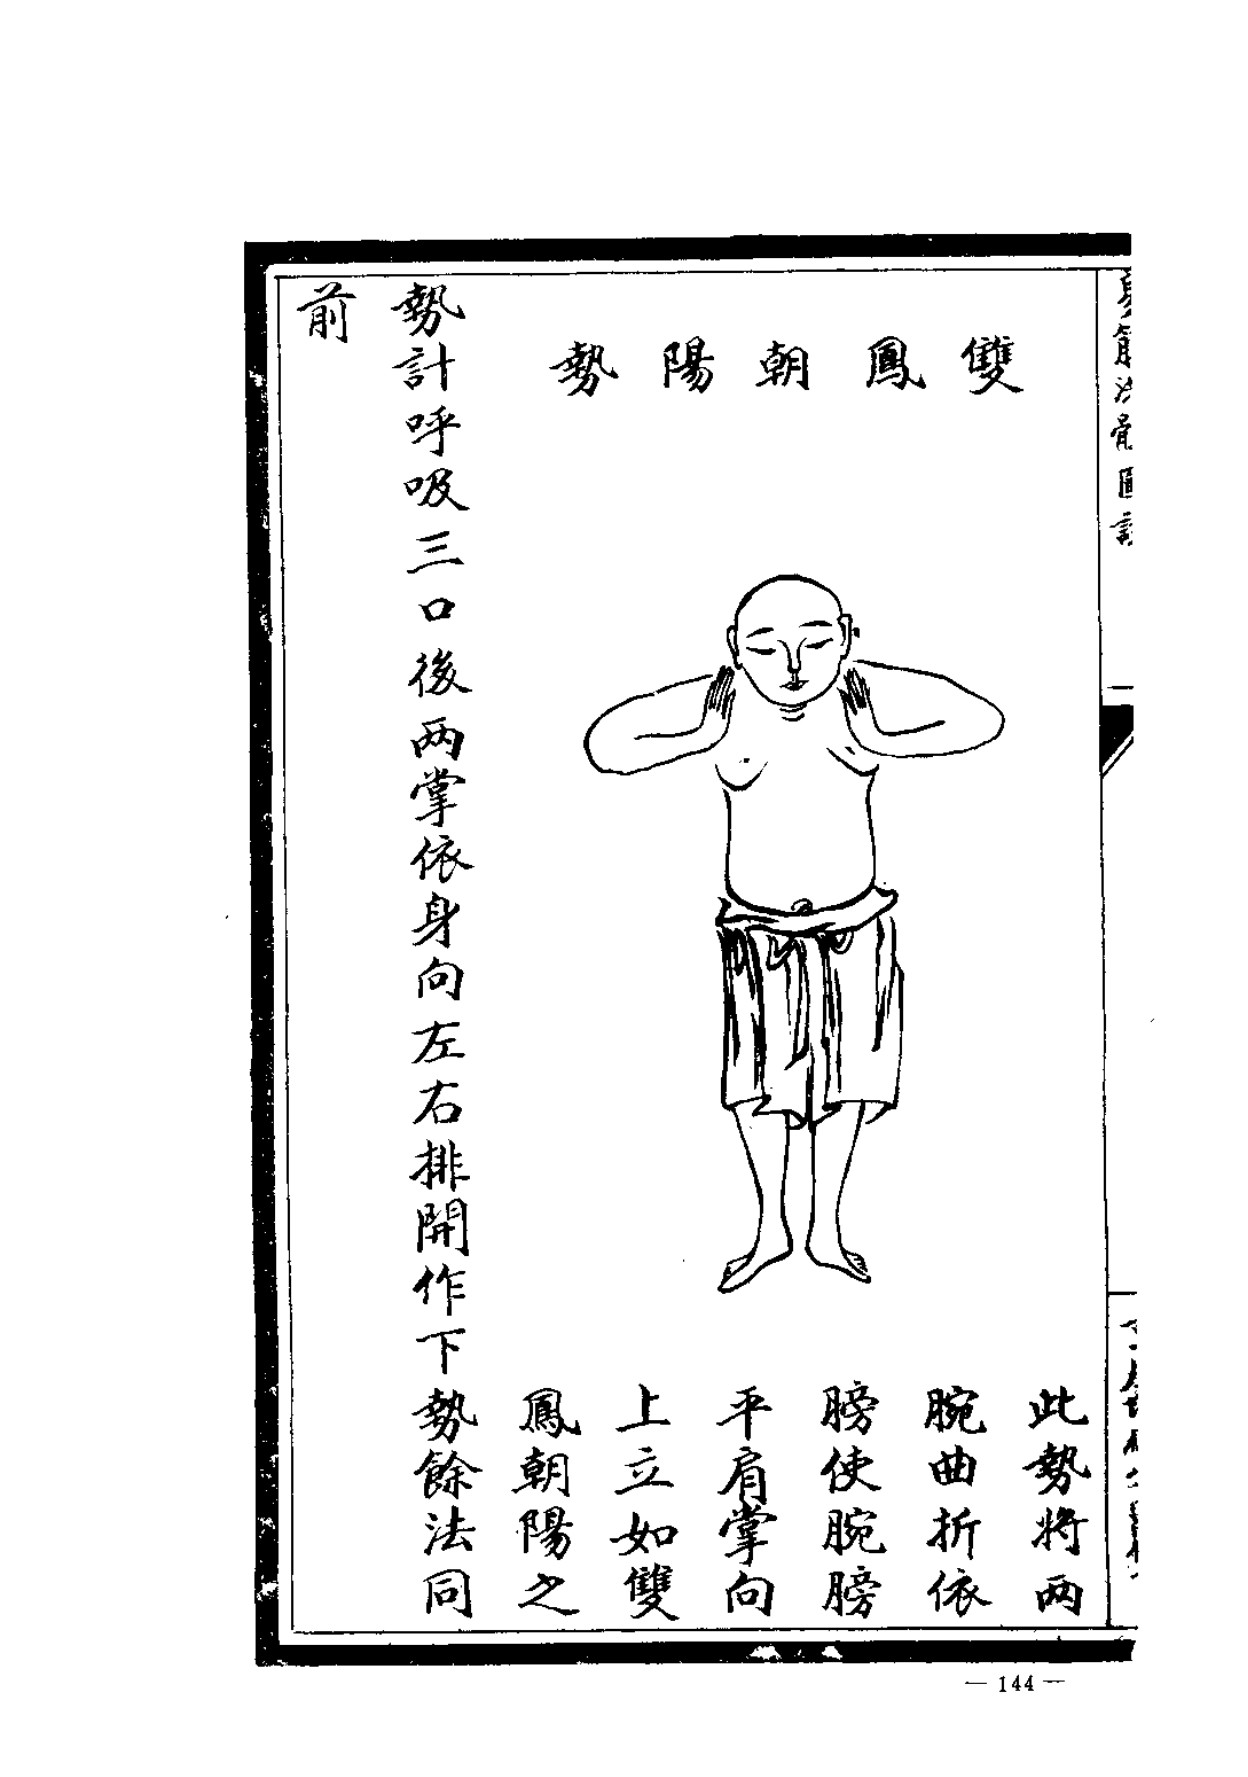 雙鳳朝陽勢
此勢將两
腕曲折依
膀使腕膀
平肩掌向
上立如雙
鳳朝陽之
勢計呼吸三口後两掌依身向左右排開作下勢餘法同
前
— 144 —